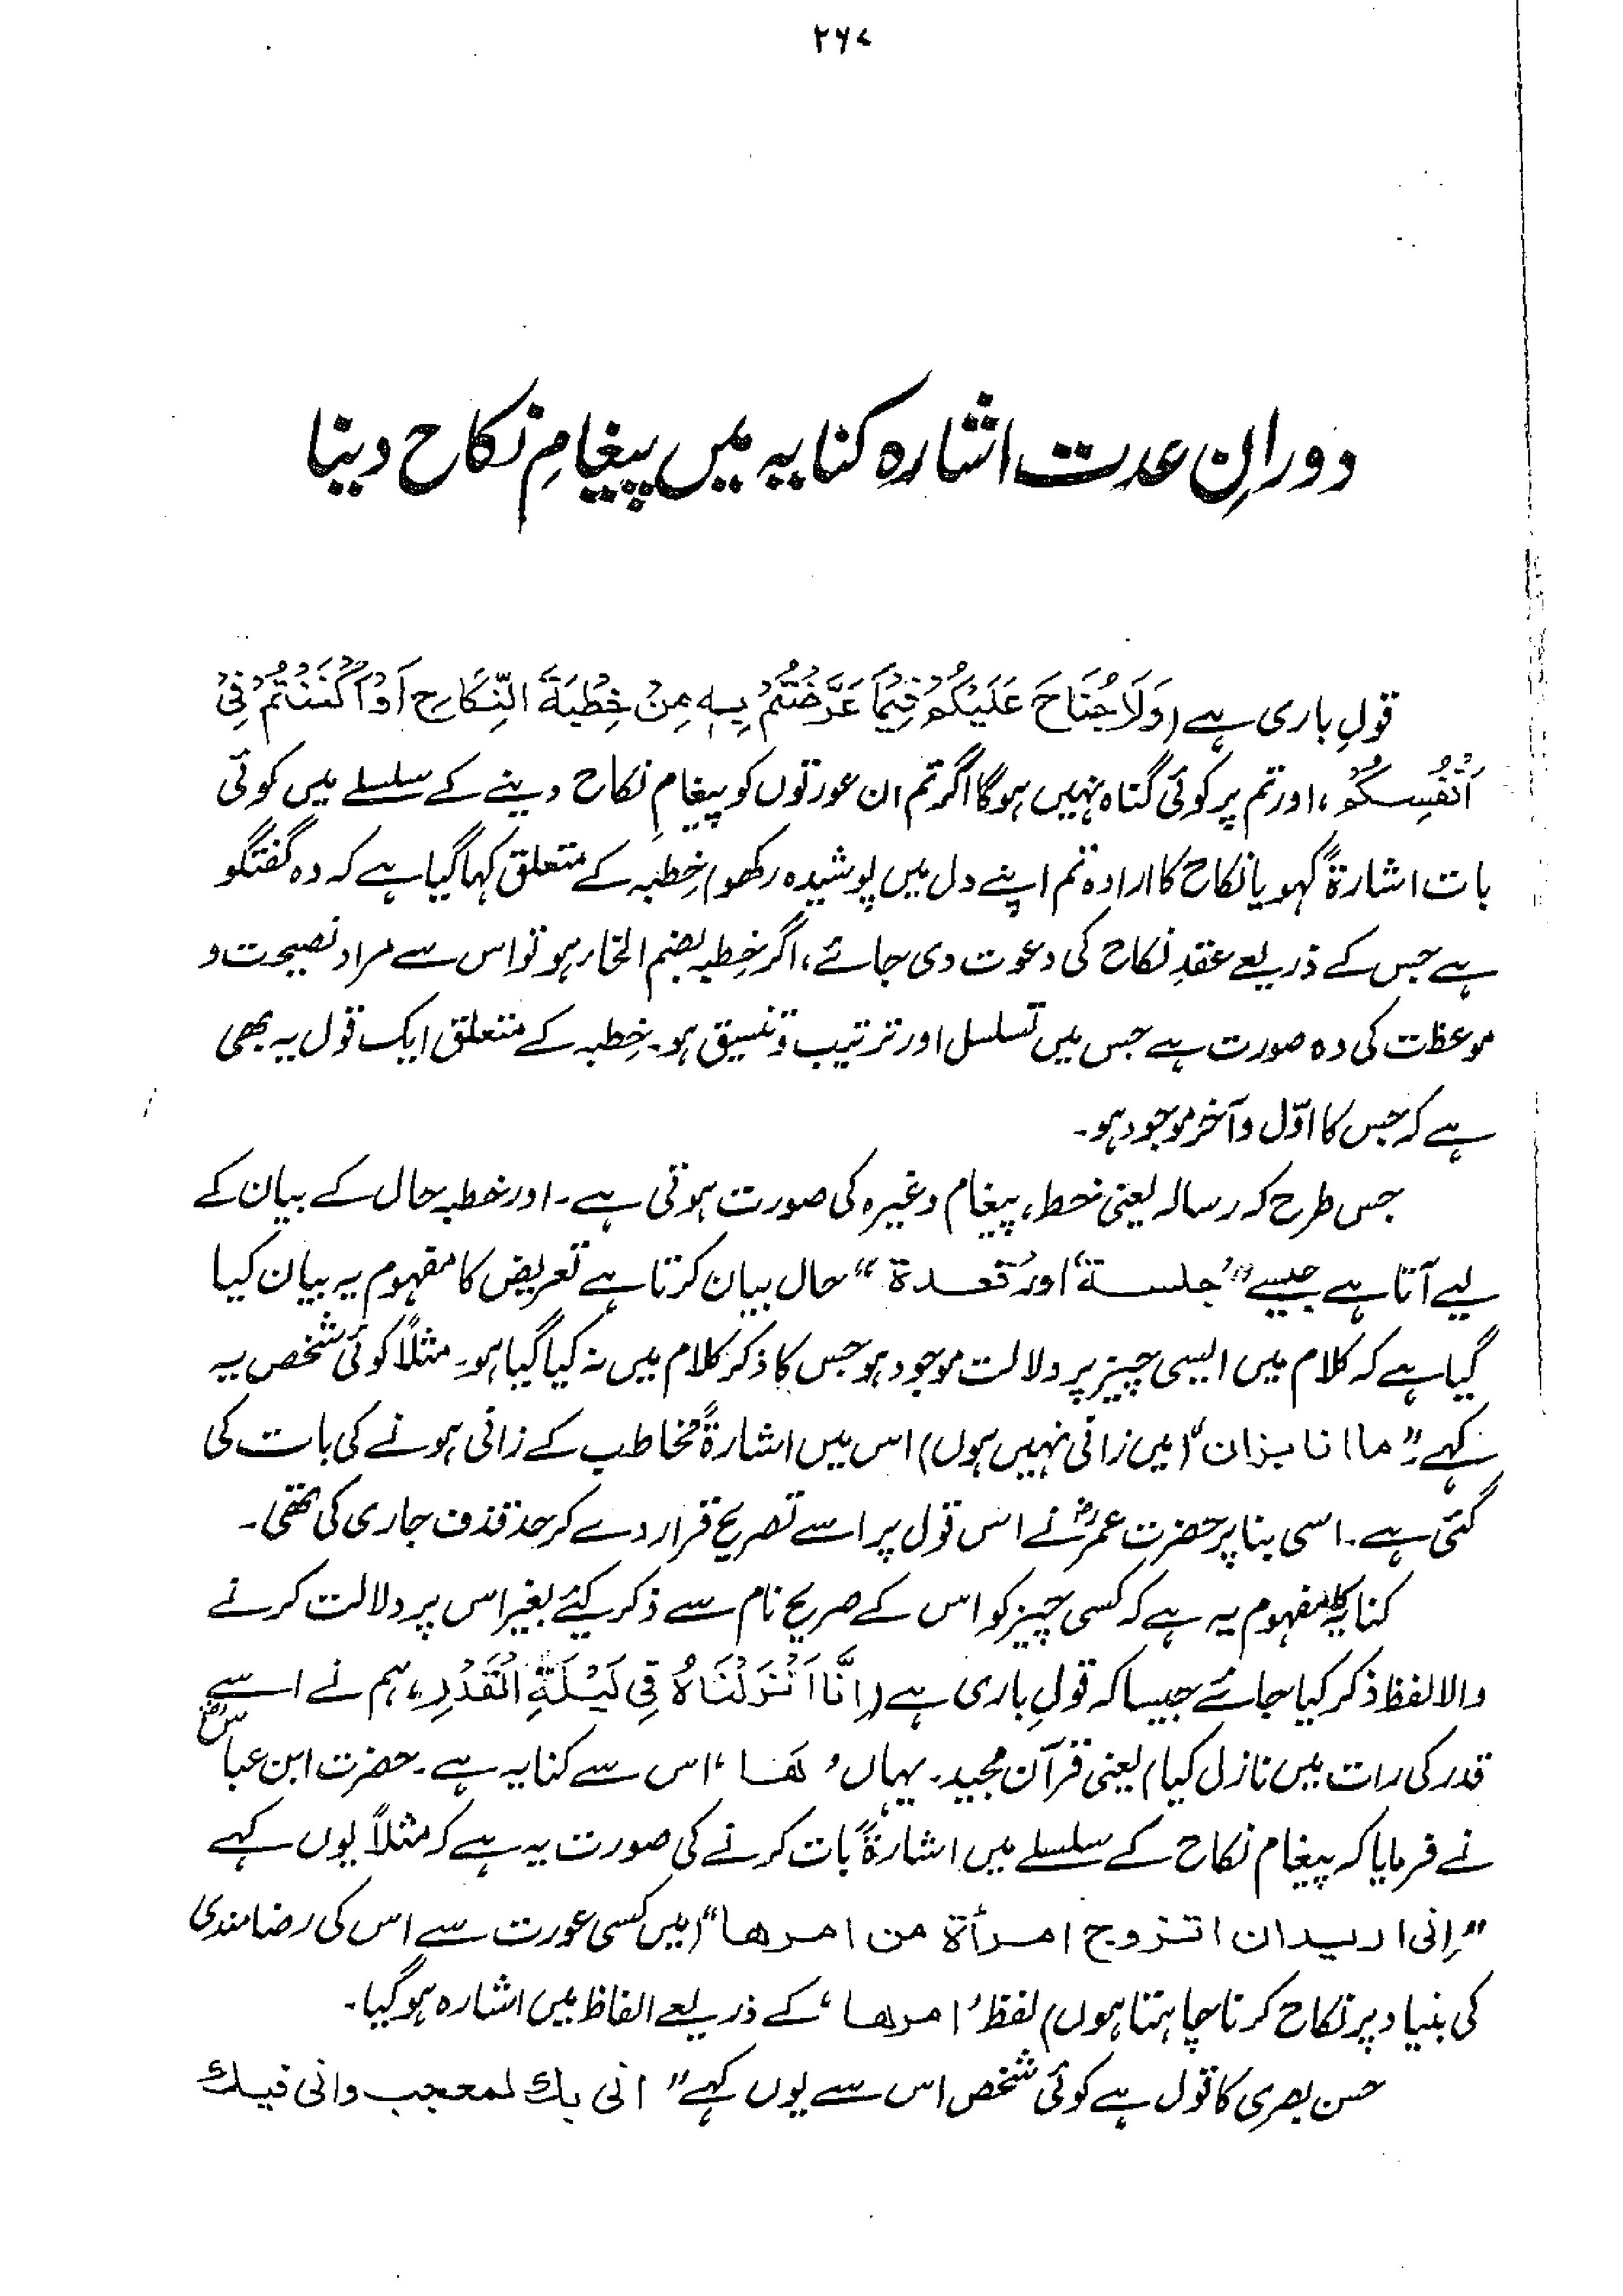 ۲۶۷
دورانِ عدت اشارہ کنایہ میں پیغامِ نکاح دینا
قولِ باری ہے (وَلَا جُنَاحَ عَلَيْكُمْ فِيمَا عَرَّضْتُمْ بِهٖ مِنْ خِطْبَةِ النِّكَاحِ اَوْ اَكْنَنْتُمْ فِىْ
اَنْفُسِكُمْ، اور تم پر کوئی گناہ نہیں ہوگا اگر تم ان عورتوں کو پیغامِ نکاح دینے کے سلسلے میں کوئی
بات اشارۃً کہو یا نکاح کا ارادہ تم اپنے دل میں پوشیدہ رکھو) خِطبہ کے متعلق کہا گیا ہے کہ وہ گفتگو
ہے جس کے ذریعے عقدِ نکاح کی دعوت دی جائے، اگر خطبہ بضم الخار ہو تو اس سے مراد نصیحت و
موعظت کی وہ صورت ہے جس میں تسلسل اور ترتیب و تنسیق ہو۔ خِطبہ کے متعلق ایک قول یہ بھی
ہے کہ جس کا اوّل و آخر موجود ہو۔
جس طرح کہ رسالہ یعنی خط، پیغام وغیرہ کی صورت ہوتی ہے۔ اور خطبہ حال کے بیان کے
لیے آتا ہے جیسے "جلسة" اور "قعدة" حال بیان کرتا ہے تعریض کا مفہوم یہ بیان کیا
گیا ہے کہ کلام میں ایسی چیز پر دلالت موجود ہو جس کا ذکر کلام میں نہ کیا گیا ہو۔ مثلاً کوئی شخص یہ
کہے "ما انا بزان" (میں زانی نہیں ہوں) اس میں اشارۃً مخاطب کے زانی ہونے کی بات کی
گئی ہے۔ اسی بنا پر حضرت عمرؓ نے اس قول پر اسے تصریح قرار دے کر حد قذف جاری کی تھی۔
کنایہ کا مفہوم یہ ہے کہ کسی چیز کو اس کے صریح نام سے ذکر کیئے بغیر اس پر دلالت کرنے
والا لفظ ذکر کیا جائے جیسا کہ قولِ باری ہے (اِنَّا اَنْزَلْنَاهُ فِى لَيْلَةِ الْقَدْرِ، ہم نے اسے
قدر کی رات میں نازل کیا) یعنی قرآن مجید۔ یہاں 'ھا' اس سے کنایہ ہے۔ حضرت ابن عباسؓ
نے فرمایا کہ پیغام نکاح کے سلسلے میں اشارۃً بات کرنے کی صورت یہ ہے کہ مثلاً یوں کہے
"اِنی ارید ان اتزوج امرأة من امرھا" (میں کسی عورت سے اس کی رضامندی
کی بنیاد پر نکاح کرنا چاہتا ہوں) لفظ 'امرھا' کے ذریعے الفاظ میں اشارہ ہوگیا۔
حسن بصری کا قول ہے کوئی شخص اس سے یوں کہے "انی بك لمعجب وانی فیك